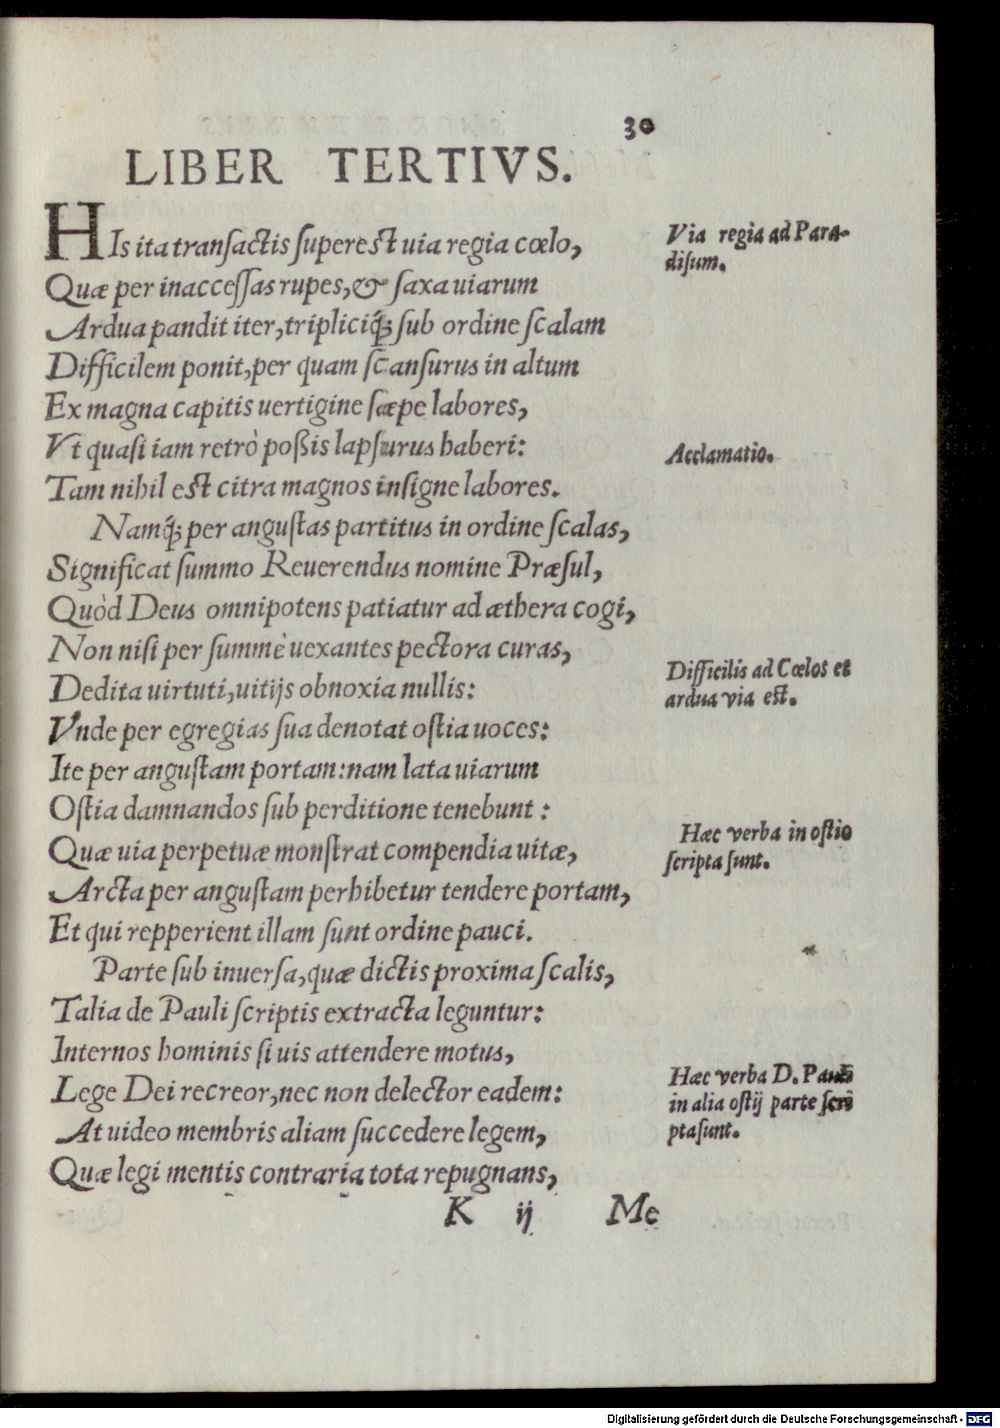 30
LIBER TERTIVS.
HIs ita transactis superest uia regia cœlo,
Quæ per inaccessas rupes, & saxa uiarum
Ardua pandit iter, tripliciq́; sub ordine scalam
Difficilem ponit, per quam scansurus in altum
Ex magna capitis uertigine sæpe labores,
Vt quasi iam retrò poßis lapsurus haberi:
Tam nihil est citra magnos insigne labores.
Namq́; per angustas partitus in ordine scalas,
Significat summo Reuerendus nomine Præsul,
Quòd Deus omnipotens patiatur ad æthera cogi,
Non nisi per summè uexantes pectora curas,
Dedita uirtuti, uitijs obnoxia nullis:
Vnde per egregias sua denotat ostia uoces:
Ite per angustam portam: nam lata uiarum
Ostia damnandos sub perditione tenebunt:
Quæ uia perpetuæ monstrat compendia uitæ,
Arcta per angustam perhibetur tendere portam,
Et qui repperient illam sunt ordine pauci.
Parte sub inuersa, quæ dictis proxima scalis,
Talia de Pauli scriptis extracta leguntur:
Internos hominis si uis attendere motus,
Lege Dei recreor, nec non delector eadem:
At uideo membris aliam succedere legem,
Quæ legi mentis contraria tota repugnans,
K ij Me
Via regia ad Para-
disum.
Acclamatio.
Difficilis ad Cœlos et
ardua via est.
Hæc verba in ostio
scripta sunt.
Hæc verba D. Pauli
in alia ostij parte scri
pta sunt.
Digitalisierung gefördert durch die Deutsche Forschungsgemeinschaft - DFG